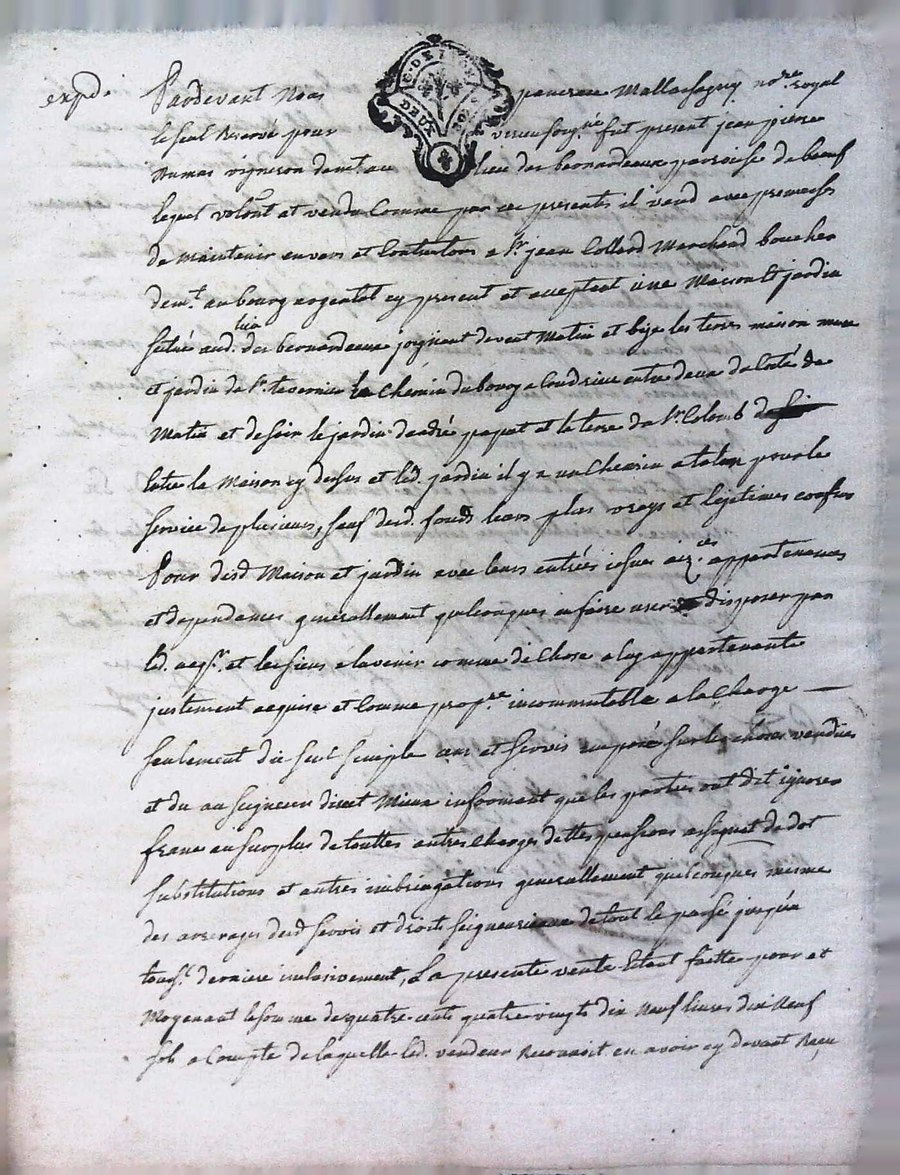 expd.
Pardevant Nous pancrau Mallachagny no.re royal
le seul Reservé pour soussigné fut present jean pierre
Dumas vigneron dem.t au lieu des bernardeaux parroisse de
lequel volont.t at vendu Comme par ces presentes il vend avec promesses
de maintenir envers et Contre tous a S.r jean Collard Marchand boucher
dem.t au bourg argental cy present et acceptant une Maison Et jardin
sçitué aud. lieu des bernardeaux joignant devent Matin et bize les terres maison mure
et jardin de S.r tavernier le Chemin du bourg a Coudrieu entre deux du Coté de
Matin et de soir le jardin d'andré paquet et le terre du S.r Colomb
Entre la Maison cy dessus et led. jardin il y a un Chemin a talon pour le
service de plusieurs, sauf desd. fonds leurs plus vrays et legitimes confins
Pour desd Maison et jardin avec leurs entrées issues aiz.ces appartenances
et dependances generallement quelconques en faire user disposer par
led. acq.r et les siens a lavenir comme de Chose a luy appartenante
justement acquise et Comme prop.re incommutable a la Charge
seulement du seul simple cens et servis imposé sur les choses vendues
et du au seigneur direct Mieux informant que les parties ont dit ignorer
franc au surplus de touttes autres Charges dettes pensions assignat de dot
substitutions et autres imbrigations generallement quelconques mesme
des arrerages desd servis et droits seigneuriaux de tout le passé jusqu'a
touss.t derniere inclusivement, La presente vente Etant faitte pour et
Moyenant la somme de quatre cents quatre vingts dix Neuf livres dix Neuf
sols a Compte de laquelle led. vendeur Reconnoit en avoir cy devant Reçu